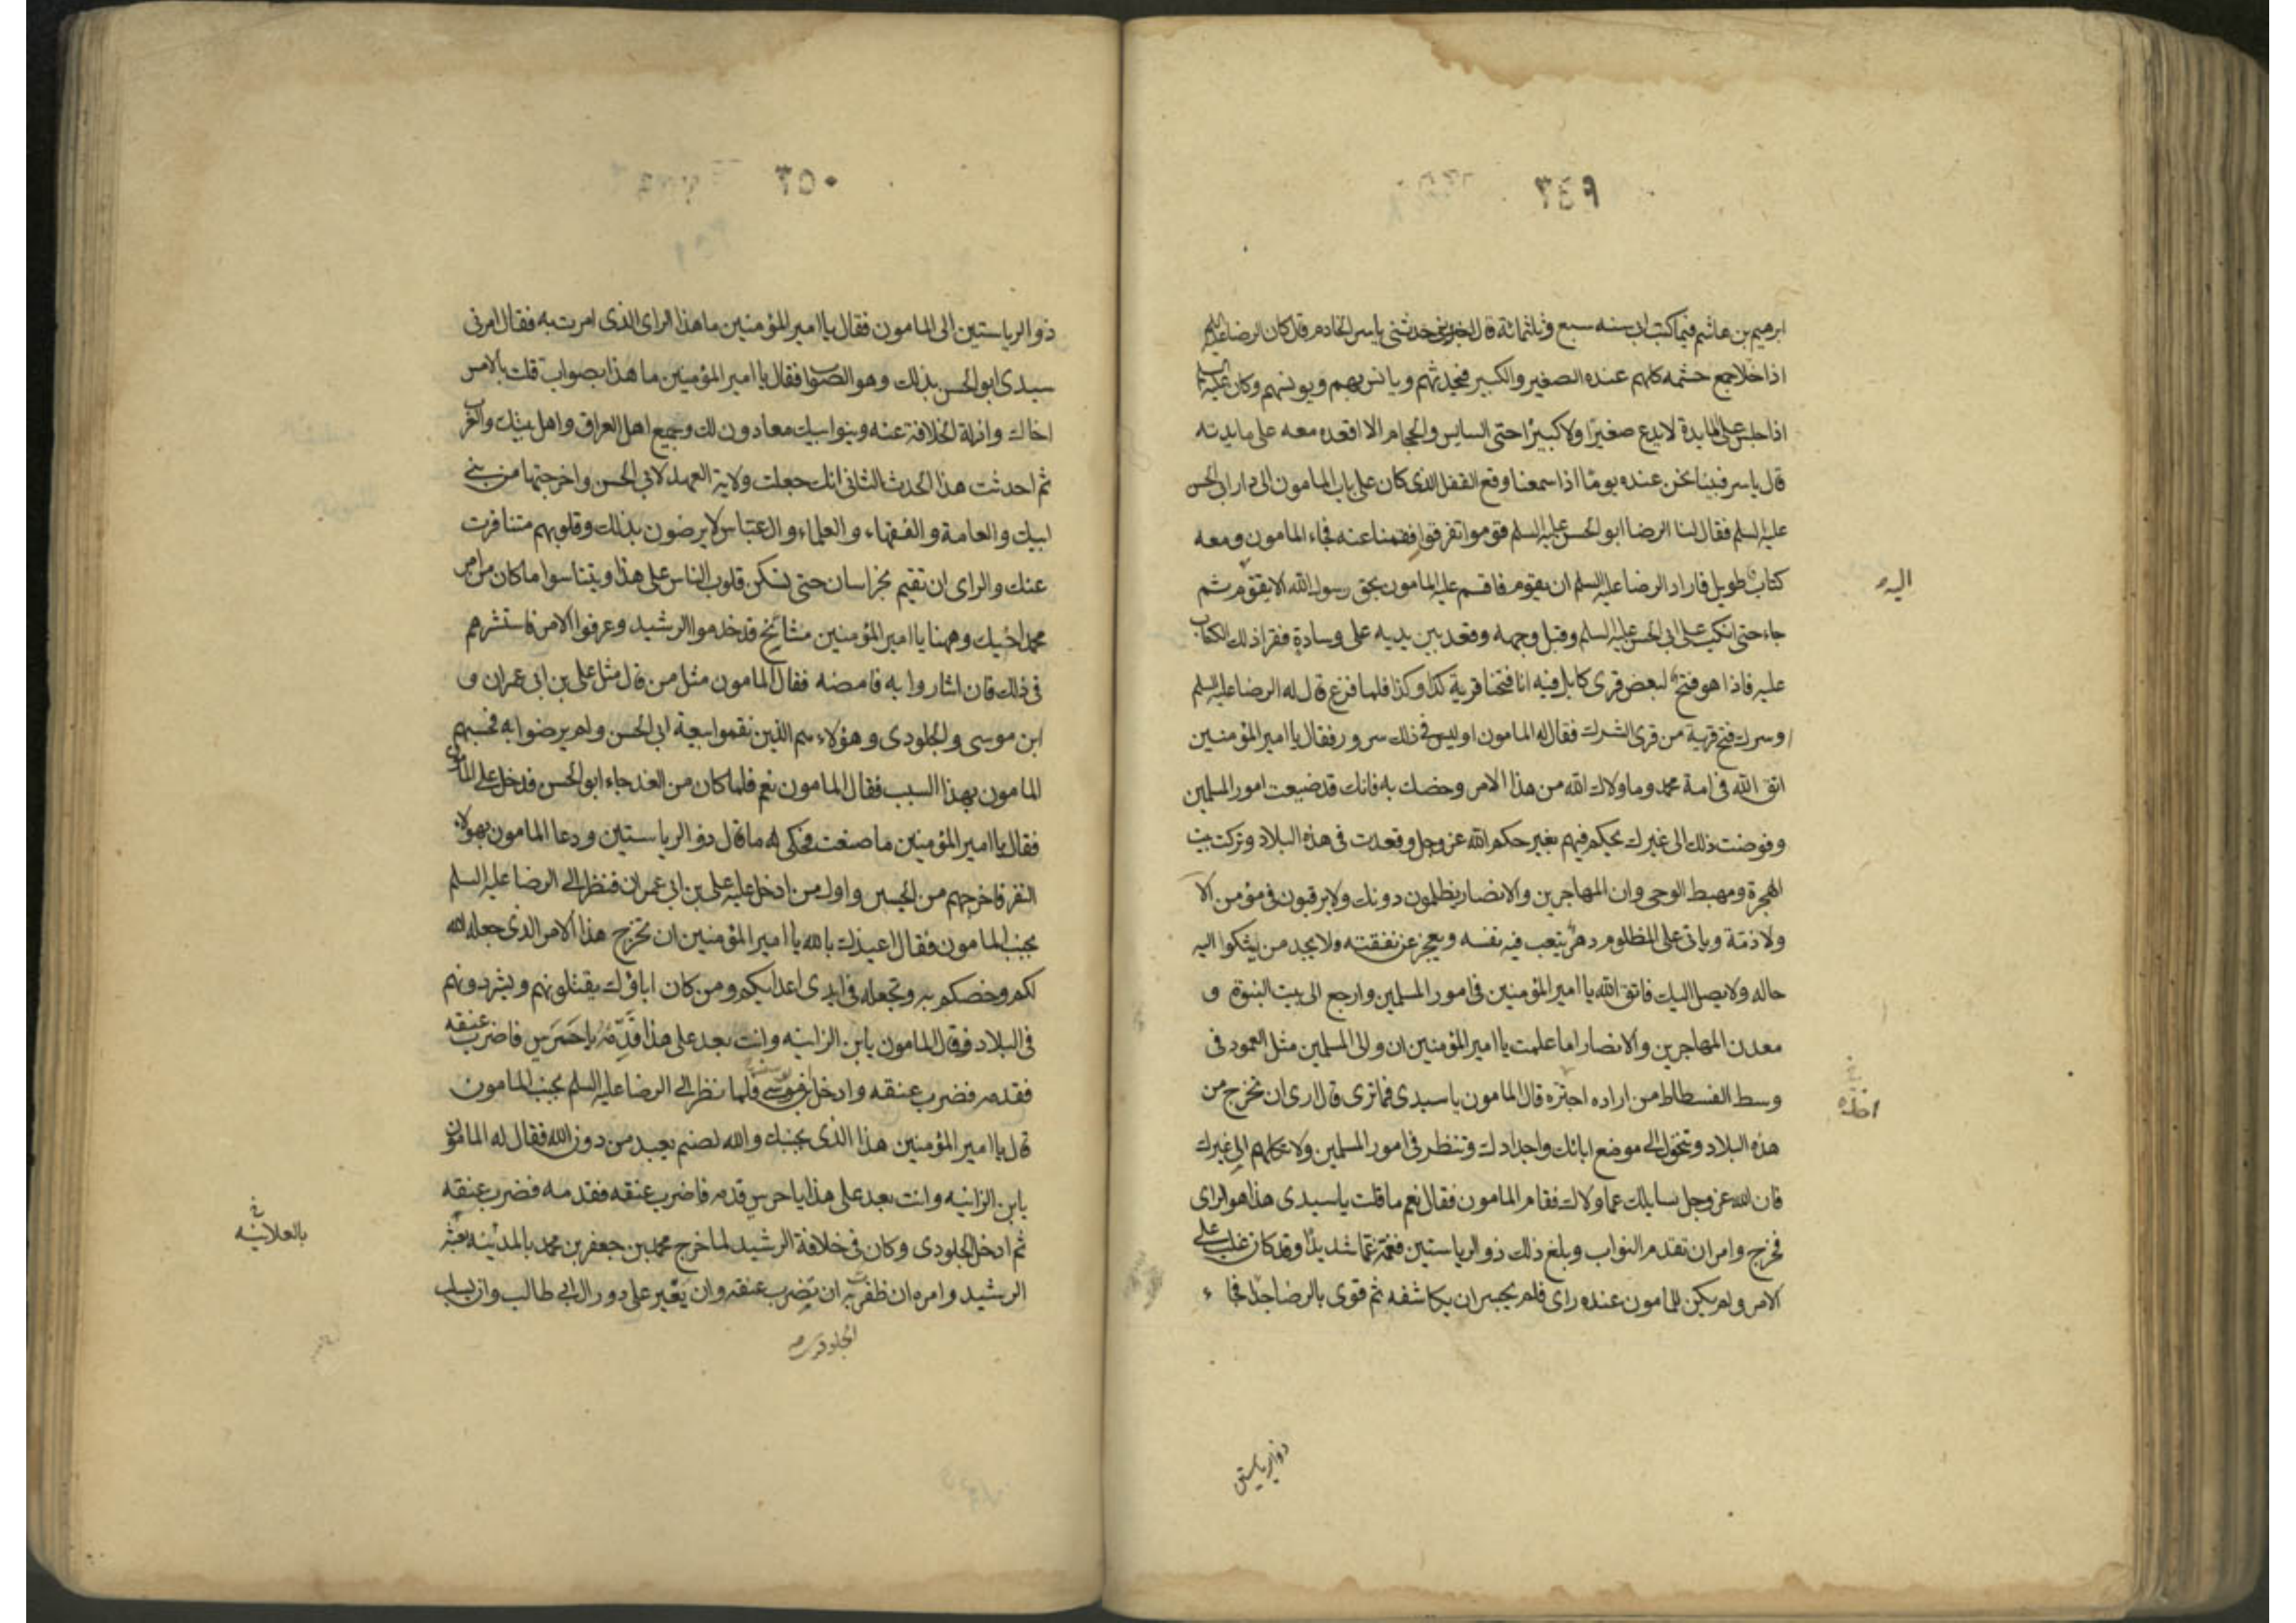 ٣٤٩
ابرهيم بن هاشم فيما كتب الى سنه سبع وثلثمائة قال اخبرني حدثنى ياسر الخادم قال كان الرضا عليه السلم
اذا خلا جمع حشمه كلهم عنده الصغير والكبير فيحدثهم ويانس بهم ويونسهم وكان عليه السلم
اذا جلس على المايدة لا يدع صغيرا ولا كبيرا حتى السايس والحجام الا اقعده معه على مايدته
قال ياسر فبينا نحن عنده يوما اذا سمعنا وقع القفل الذى كان على باب المامون الى دار ابى الحسن
عليه السلم فقال لنا الرضا ابو الحسن عليه السلم قوموا تفرقوا فقمنا عنه فجاء المامون ومعه
كتاب طويل فاراد الرضا عليه السلم ان يقوم فاقسم عليه المامون بحق رسول الله الا يقوم ثم
اليه
جاء حتى انكب على ابى الحسن عليه السلم وقبل وجهه وقعد بين يديه على وسادة فقرا ذلك الكتاب
عليه فاذا هو فتح لبعض قرى كابل فيه انا فتحنا قرية كذا وكذا فلما فرغ قال له الرضا عليه السلم
وسرك فتح قرية من قرى الشرك فقال له المامون اوليس فى ذلك سرور فقال يا امير المؤمنين
اتق الله فى امة محمد وما ولاك الله من هذا الامر وخصك به فانك قد ضيعت امور المسلمين
وفوضت ذلك الى غيرك يحكم فيهم بغير حكم الله عز وجل وقعدت فى هذه البلاد وتركت بيت
الهجرة ومهبط الوحى وان المهاجرين والانصار يظلمون دونك ولا يرقبون فى مؤمن الا
ولا ذمة وياتى على المظلوم دهر يتعب فيه نفسه ويعجز عن نفقته ولا يجد من يشكوا اليه
حاله ولا يصل اليك فاتق الله يا امير المؤمنين فى امور المسلمين وارجع الى بيت النبوة و
معدن المهاجرين والانصار اما علمت يا امير المؤمنين ان والى المسلمين مثل العمود فى
وسط الفسطاط من اراده اجتره قال المامون يا سيدى فما ترى قال ارى ان تخرج من
اخذه
هذه البلاد وتتحول الى موضع ابائك واجدادك وتنظر فى امور المسلمين ولا تكلهم الى غيرك
فان الله عز وجل سايلك عما ولاك فقام المامون فقال نعم ما قلت يا سيدى هذا هو الراى
فخرج وامر ان تقدم النواب وبلغ ذلك ذو الرياستين فغمه غما شديدا وقد كان غلب على
الامر ولم يكن للمامون عنده راى فلم يجسر ان يكاشفه ثم قوى بالرضا جدا فجاء
ذو الرياستين
٣٥٠
ذو الرياستين الى المامون فقال يا امير المؤمنين ما هذا الراى الذى امرت به فقال امرنى
سيدى ابو الحسن بذلك وهو الصواب فقال يا امير المؤمنين ما هذا بصواب قتلت بالامس
اخاك وازلة الخلافة عنه وبنوا ابيك معادون لك وجميع اهل العراق واهل بيتك والعرب
ثم احدثت هذا الحدث الثانى انك جعلت ولاية العهد لابى الحسن واخرجتها من بنى
ابيك والعامة والفقهاء والعلماء وال العباس لا يرضون بذلك وقلوبهم متنافرت
عنك والراى ان تقيم بخراسان حتى تسكن قلوب الناس على هذا ويتناسوا ما كان من امر
محمد اخيك وههنا يا امير المؤمنين مشائخ قد خدموا الرشيد وعرفوا الامر فاستشرهم
فى ذلك فان اشاروا به فامضه فقال المامون مثل من قال مثل على بن ابى عمران و
ابن موسى والجلودى وهؤلاء هم الذين نقموا بيعة ابى الحسن ولم يرضوا به فحبسهم
المامون بهذا السبب فقال المامون نعم فلما كان من الغد جاء ابو الحسن فدخل على المامون
فقال يا امير المؤمنين ما صنعت فحكى له ما قال ذو الرياستين ودعا المامون بهولاء
النفر فاخرجهم من الحبس واول من ادخل عليه على بن ابى عمران فنظر الى الرضا عليه السلم
بجنب المامون فقال اعيذك بالله يا امير المؤمنين ان تخرج هذا الامر الذى جعله الله
لكم وخصكم به وتجعله فى ايدى اعدائكم ومن كان اباؤك يقتلونهم ويشردونهم
فى البلاد فقال المامون يابن الزانيه وانت بعد على هذا قدمه يا حرس فاضرب عنقه
فقدم فضرب عنقه وادخل ابن موسى فلما نظر الى الرضا عليه السلم بجنب المامون
قال يا امير المؤمنين هذا الذى بجنبك والله لصنم يعبد من دون الله فقال له المامون
يابن الزانيه وانت بعد على هذا يا حرس قدمه فاضرب عنقه فقدمه فضرب عنقه
ثم ادخل الجلودى وكان فى خلافة الرشيد لما خرج محمد بن جعفر بن محمد بالمدينه بعثه
بالعلانيه
الرشيد وامره ان ظفر به ان يضرب عنقه وان يغير على دور ال ابى طالب وان يسلب